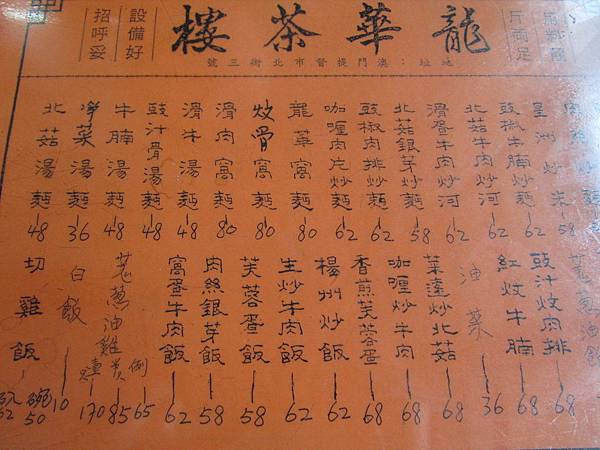 斤兩足
龍華茶樓
地址：澳門提督市北街三號
設備好
招呼妥
星洲炒米 58
豉椒牛腩炒麵 62
北菇牛肉炒河 62
滑蛋牛肉炒河 62
北菇銀芽炒麵 62
豉椒肉排炒麵 62
咖喱肉片炒麵 62
龍華窩麵 80
炆骨窩麵 80
滑肉窩麵 80
滑牛湯麵 48
豉汁骨湯麵 48
牛腩湯麵 48
淨菜湯麵 36
北菇湯麵 48
豉汁炆肉排 68
紅炆牛腩 68
油菜 36
菜薳炒北菇 68
咖喱炒牛肉 68
香煎芙蓉蛋 68
揚州炒飯 62
生炒牛肉飯 62
芙蓉蛋飯 58
肉絲銀芽飯 58
窩蛋牛肉飯 62
葱油雞 例 65 85 170
白飯 10
切雞飯 碗 50 62